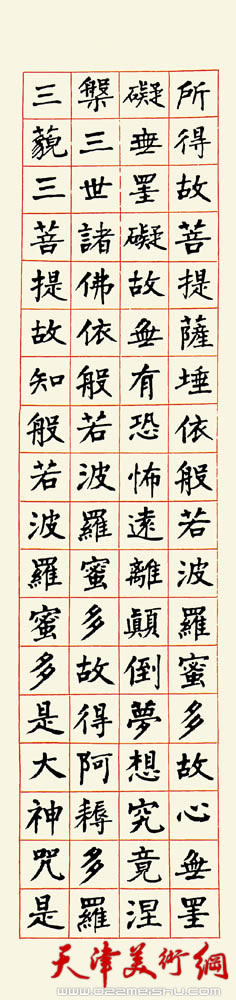 所得故菩提薩埵依般若波羅蜜多故心無罣
礙無罣礙故無有恐怖遠離顛倒夢想究竟涅
槃三世諸佛依般若波羅蜜多故得阿耨多羅
三藐三菩提故知般若波羅蜜多是大神咒是
天津美術網
www.022meishu.com